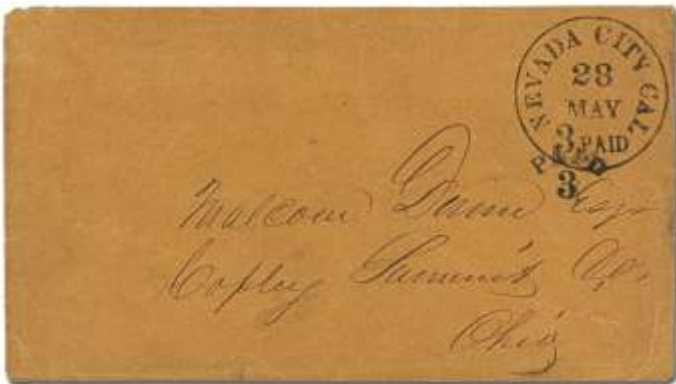 NEVADA CITY CAL.
28
MAY
3 PAID
PAID
3
Malcom Dunn Esqr
Copley Summit Co.
Ohio